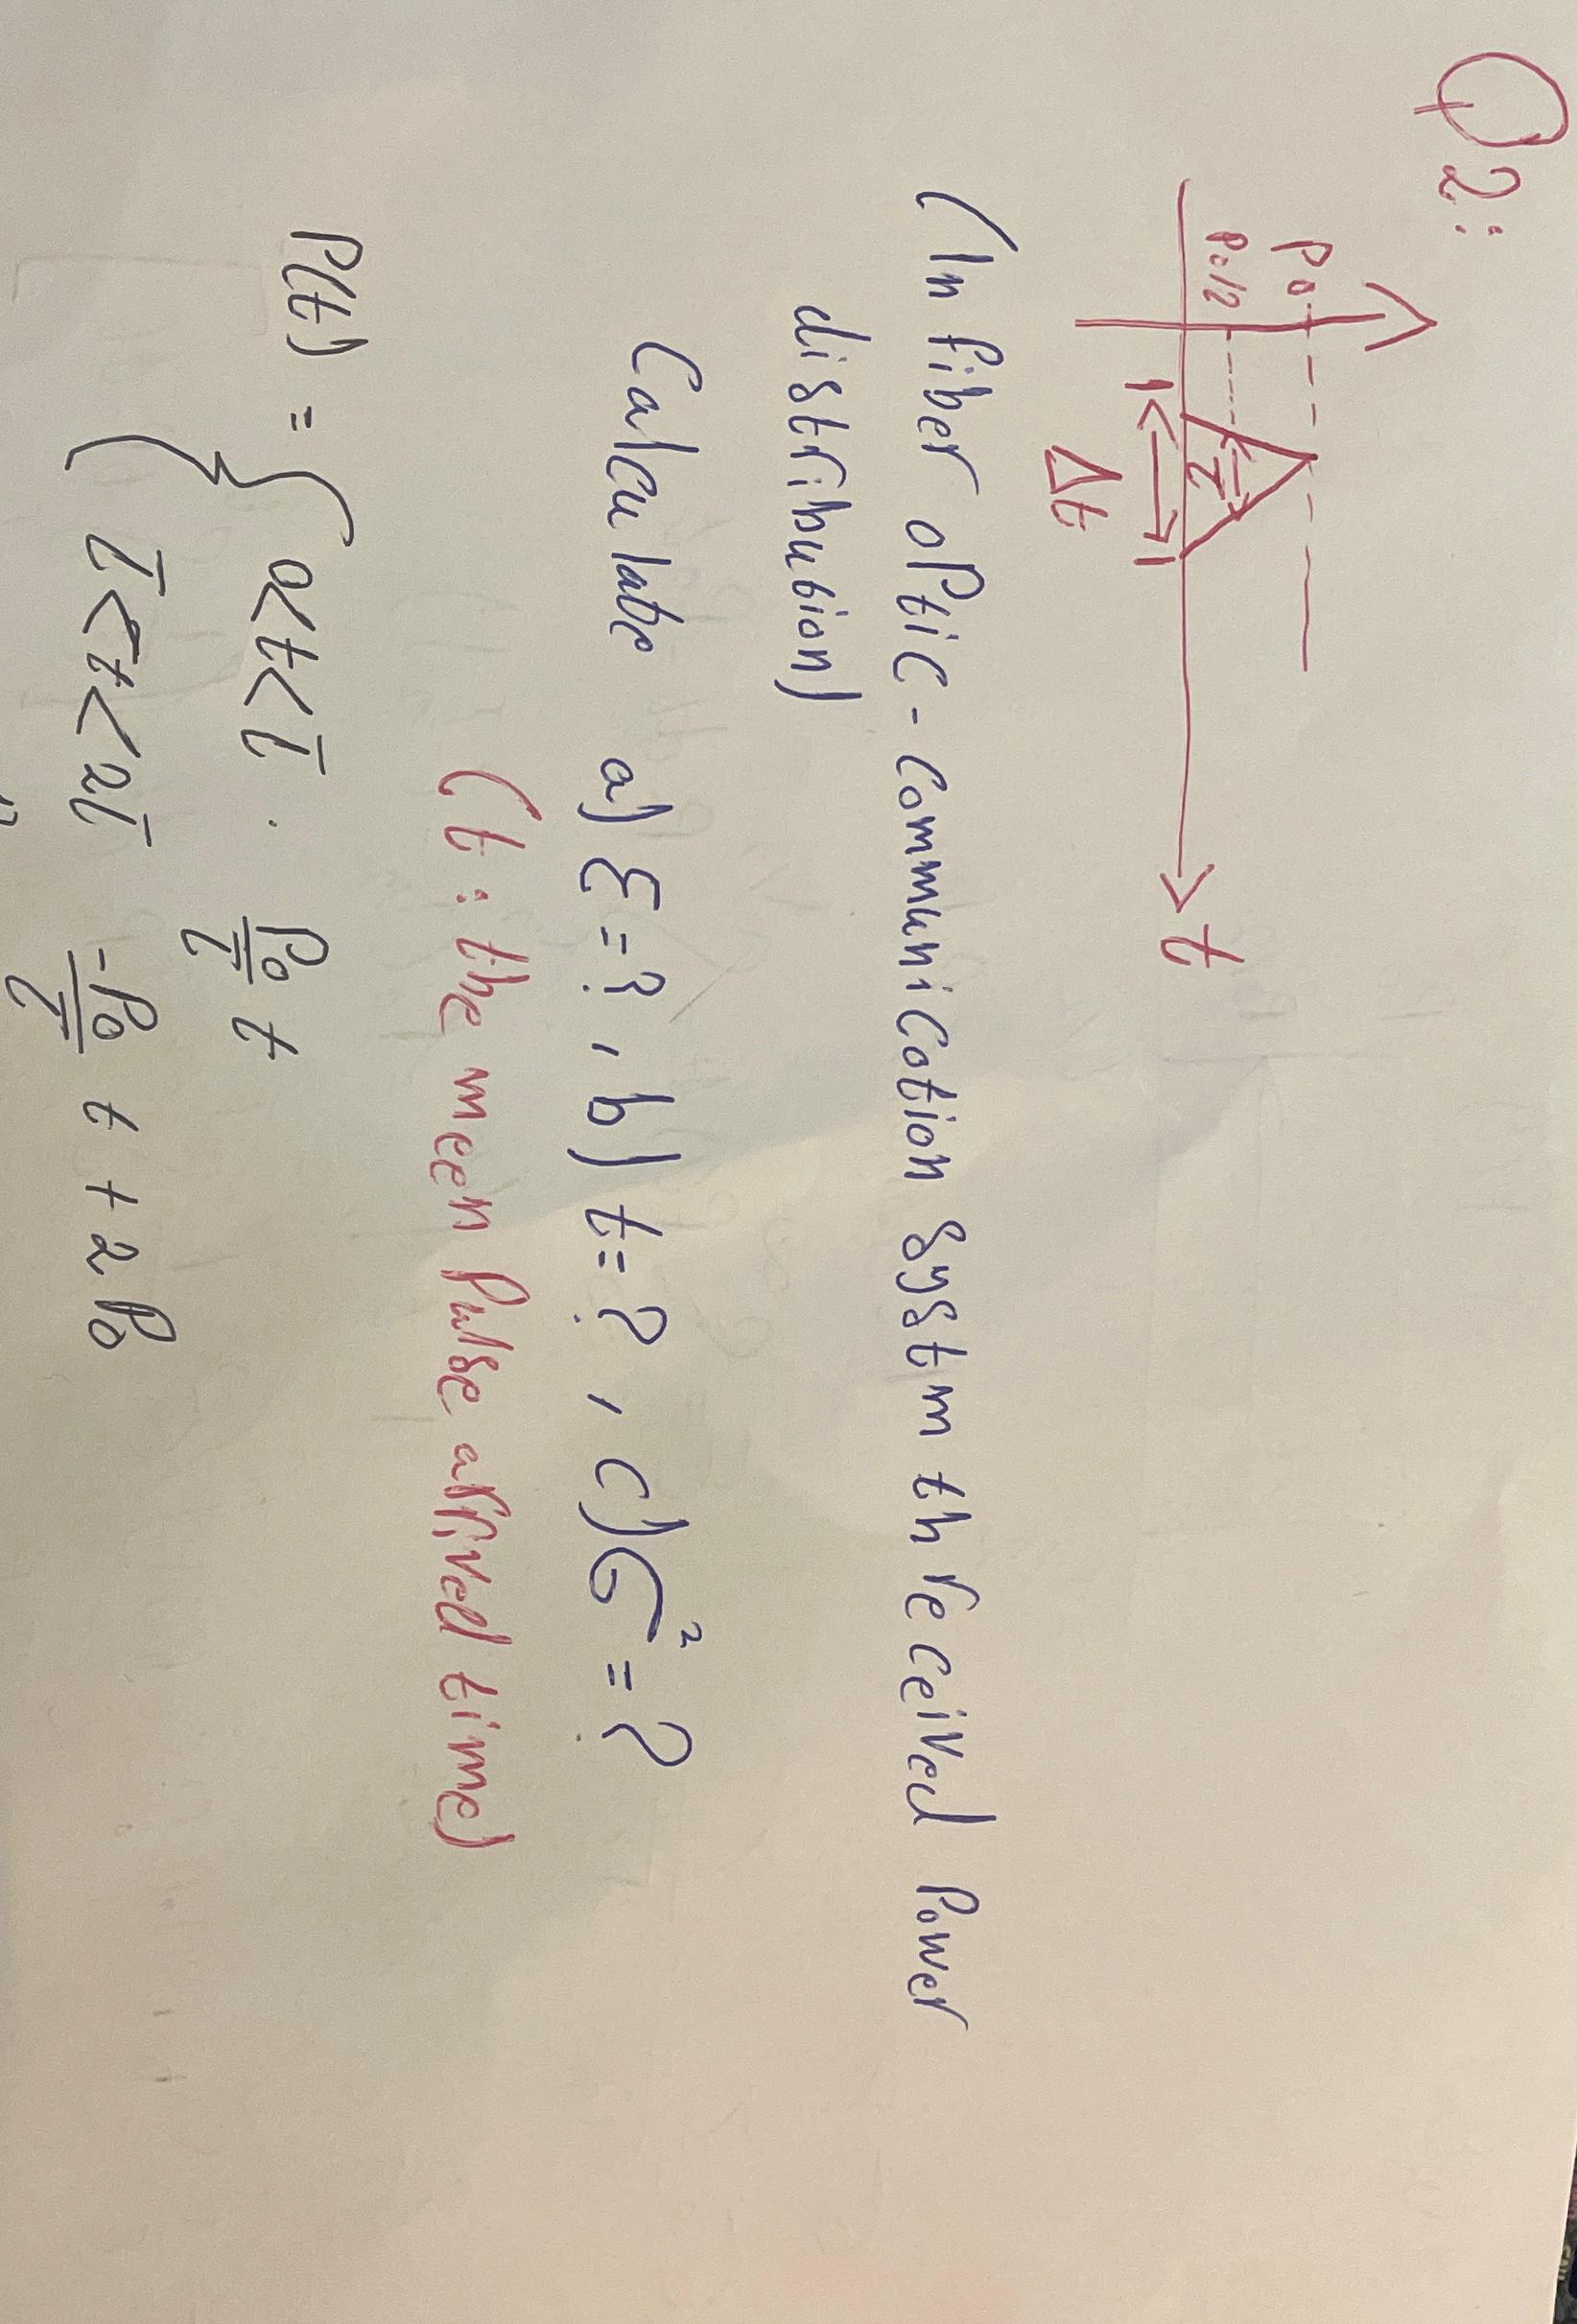 Q2:
P0
P0/2
τ
t
Δt
(In fiber optic-communicotion systm th received Power
distribution)
Calculate a) ξ=?, b) t=?, c) σ²=?
(t: the meen Pulse arrived time)
P(t) = { 0<t<τ P0/τ t
τ<t<2τ -P0/τ t + 2P0